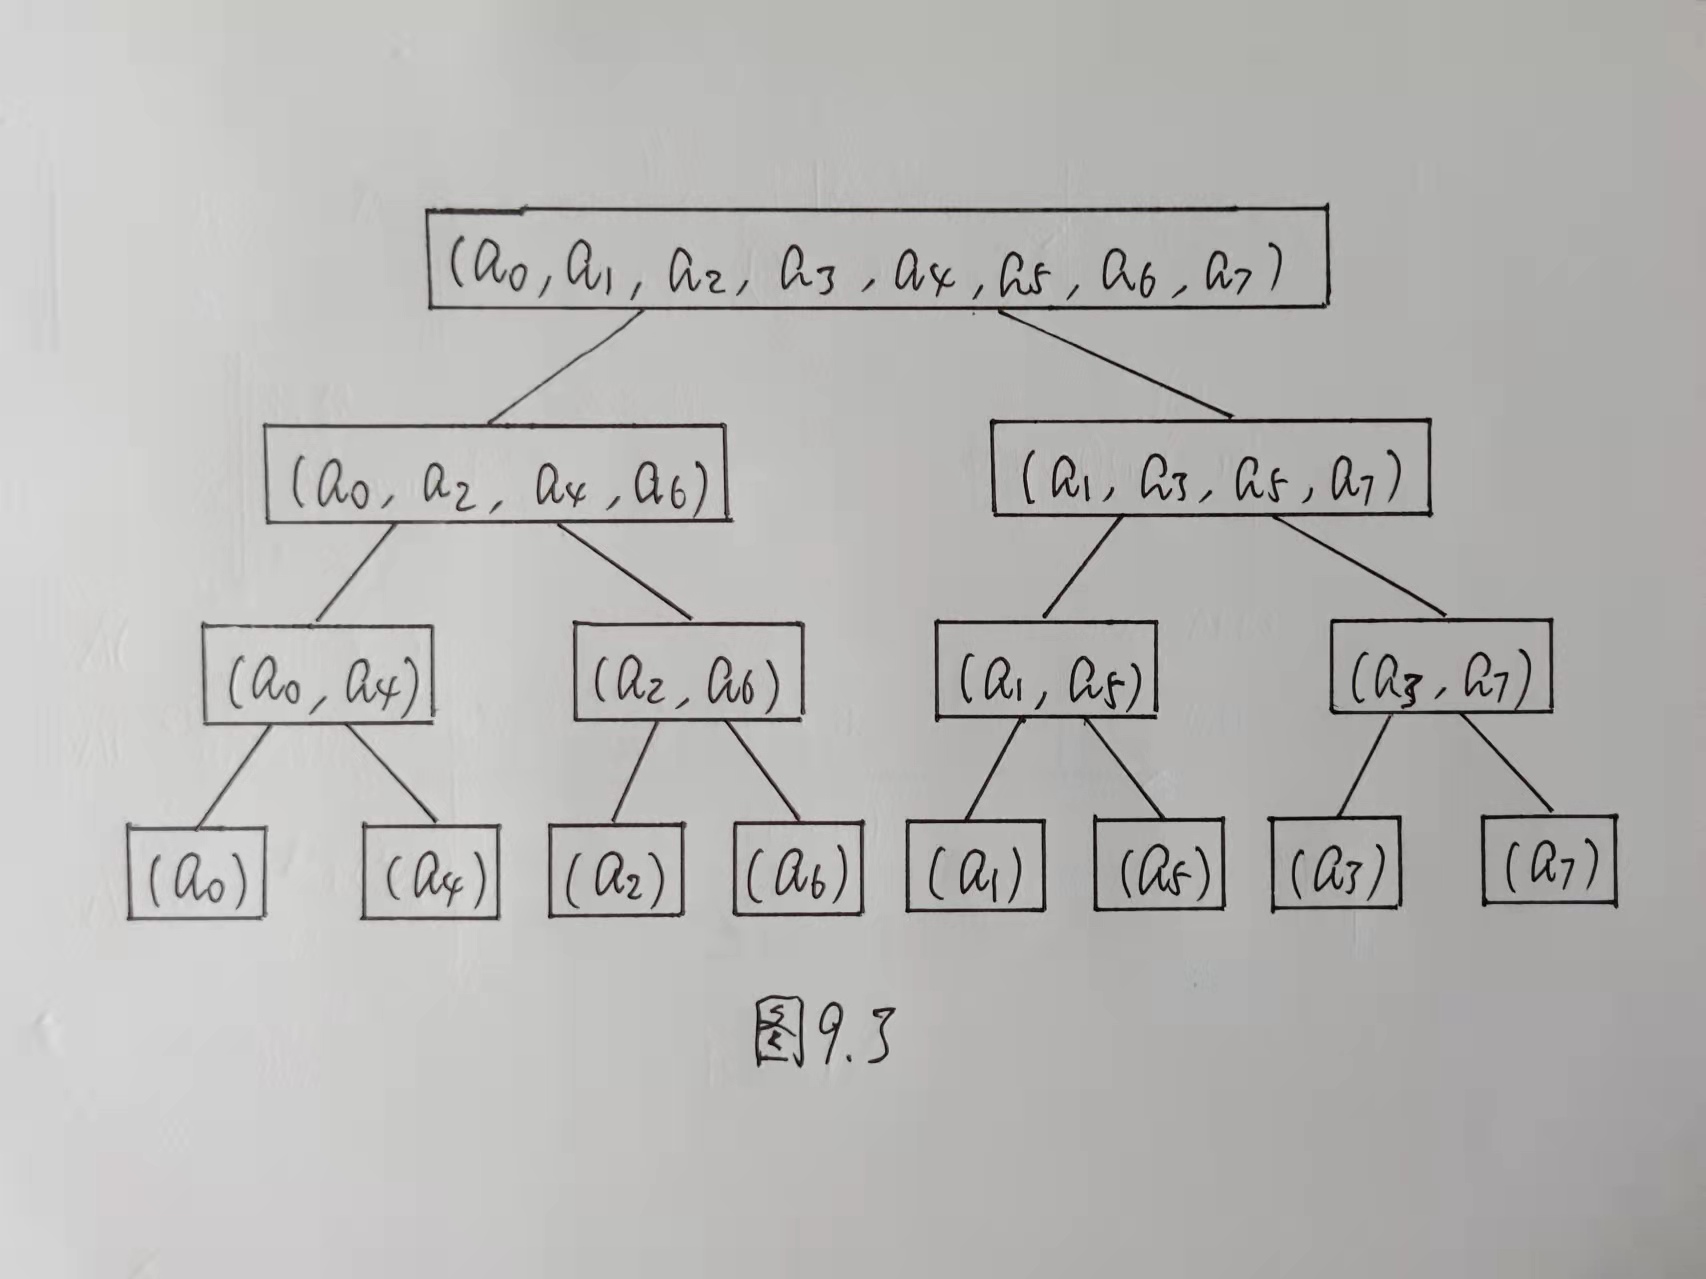 (a0, a1, a2, a3, a4, a5, a6, a7)
(a0, a2, a4, a6) (a1, a3, a5, a7)
(a0, a4) (a2, a6) (a1, a5) (a3, a7)
(a0) (a4) (a2) (a6) (a1) (a5) (a3) (a7)
图9.3